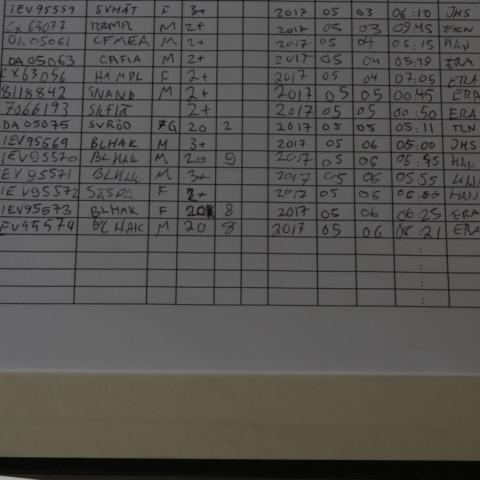 1EV95559 SVHÄT F 3+ 2017 05 03 06:10 JHS
CX63077 HÄMPL M 2+ 2017 05 03 09:45 EKN
DA05061 CFMEA M 2+ 2017 05 04 05:15 HÅN
DA05063 CAFLA M 2+ 2017 05 04 05:19 ERA
CX63056 HÄMPL F 2+ 2017 05 04 07:05 ERA
8118842 SVAND M 2+ 2017 05 05 00:45 ERA
7066193 2+ 2017 05 05 00:50 ERA
DA05075 SVRÖD FG 20 2 2017 05 05 05:11 TLN
1EV95569 BLHAK M 3+ 2017 05 06 JHS
1EV95570 BLHAK M 20 9 2017 05 06 HÅN
1EV95571 BLHAK M 3+ 2017 05 06 05:55
1EV95572 F 2+ 2017 05 06 HÅN
1EV95573 BLHAK F 20 8 2017 05 06 06:25 ERA
EV95574 BLHAK M 20 8 2017 05 06 ERA